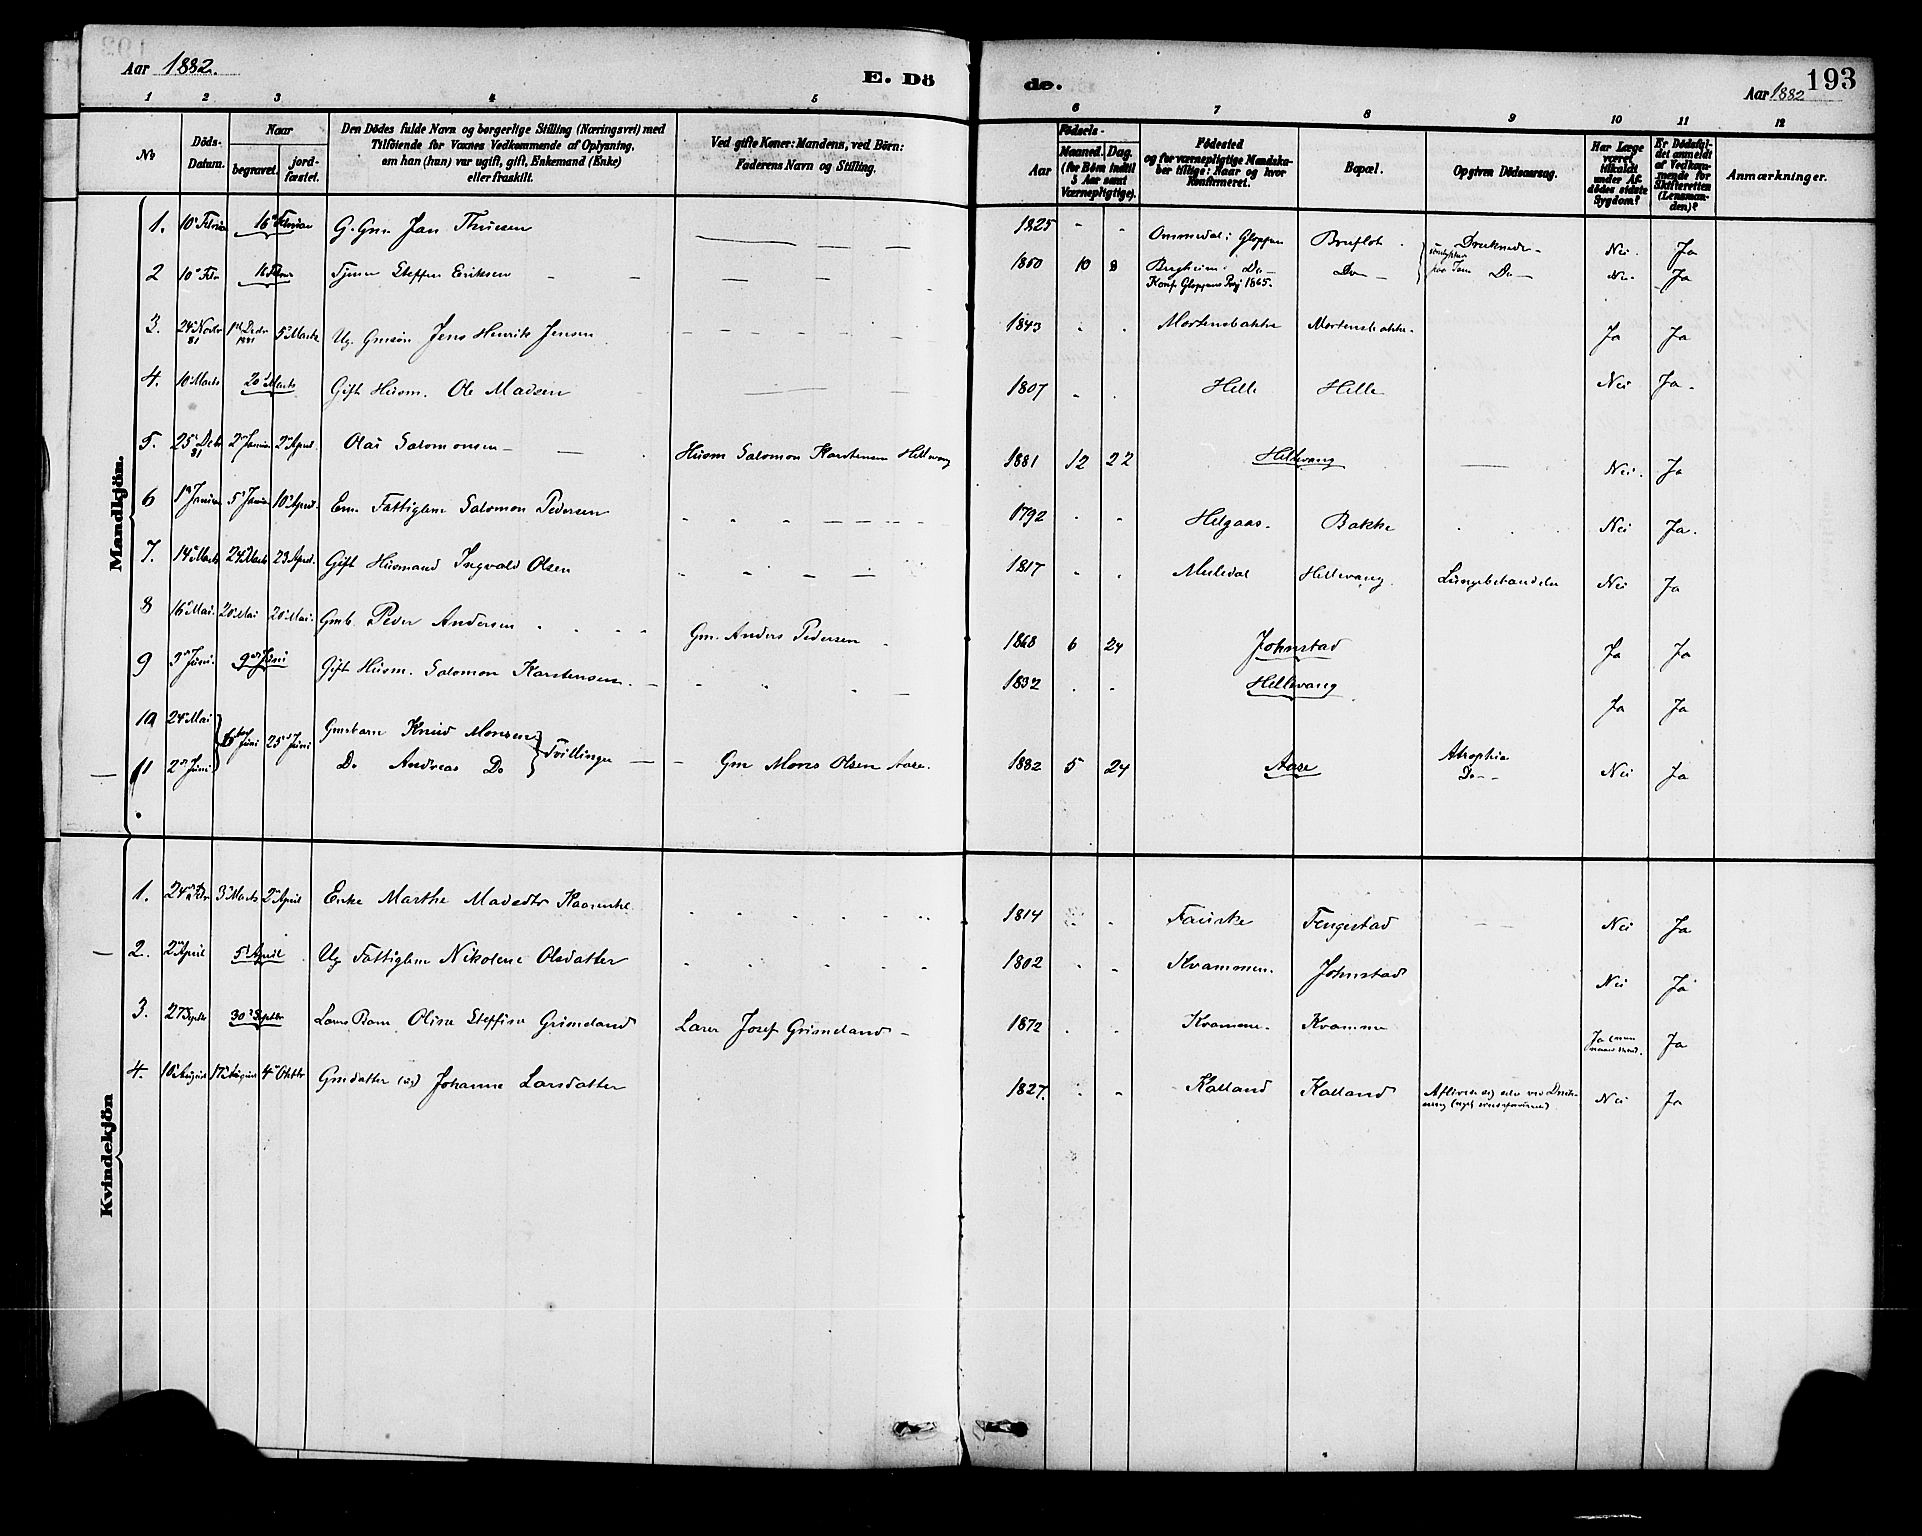 Aar 1882.
E. Dö
de.
Aar 1882
193
1 2 3 4 5 6 7 8 9 10 11 12
No
Döds-Datum.
Naar
begravet.
jord-fæstet.
Den Dödes fulde Navn og borgerlige Stilling (Næringsvei) med
Tilföiende for Voxnes Vedkommende af Oplysning,
om han (hun) var ugift, gift, Enkemand (Enke)
eller fraskilt.
Ved gifte Koner: Mandens, ved Börn:
Faderens Navn og Stilling.
Födsels-
Aar
Maaned. Dag.
(for Börn indtil
5 Aar samt
Værnepligtige).
Födested
og for værnepligtige Mandska-
ber tillige: Naar og hvor
konfirmeret.
Bopæl.
Opgiven Dödsaarsag.
Har Læge
været
tilkaldt
under Af-
dödes sidste
Sygdom?
Er Dödsfal-
det anmeldt
af Vedkom-
mende for
Skifteretten
(Lensman-
den)?
Anmærkninger.
Mandkjön.
1. 10 16 G. Gm. Jan Thuesen 1825 - - Ommedal i Gloppen Bruflot Druknede Nei. Ja
2 10 Febr 16 Febr Steffen Eriksen 1850 10 8 Bergheim Do Do Do Nei Ja
Konf. Gloppens 1865.
3. 24 Novbr 81 1 Decbr 1881 5 Marts Ug. Gmsön Jens Henrik Jensen 1843 Mortensbakke Mortensbakke Ja Ja
4. 10 Marts 20 Marts Gift Husm. Ole Madsen 1807 Helle Helle Nei Ja
5. 25 Decbr 81 2 Januar 2 April Olai Salomonsen Husm Salomon Karstensen Hellevang 1881 12 22 Hellevang Nei. Ja
6 1 Januar 5 Januar 10 April Em. Fattiglem Salomon Pedersen 1792 Helgaas. Bakke Nei Ja.
7. 14 Marts 24 Marts 23 April Gift Husmand Ingvald Olsen 1817 Muledal Hellevang. Nei Ja
8 16 Mai. 20 Mai 20 Mai. Gmb. Peder Andersen Gm. Anders Pedersen 1868 6 24 Johnstad Ja Ja
9 3 Juni. 9 Juni Gift Husm. Salomon Karstensen. 1832 Hellevang Ja Ja
10 24 Mai 6 Juni 25 Juni Gmsbarn Knud Monsen Tvillinger
11 2 Juni Do Andreas Do Gm Mons Olsen Aase. 1882 5 24 Aase Atrophia Do Nei Ja
Kvindekjön
1. 24 Febr 3 Marts 2 April Enke Marthe Madsdtr 1814 Fauske Tengestad Nei Ja
2. 2 April 5 April Ug Fattiglem Nikolene Olsdatter 1802 Kvammen. Johnstad Nei Ja
3. 27 Septbr 30 Septbr Lærers Barn Olina Steffine Grimeland Lærer Josef Grimeland 1872 Kvamme. Kvamme Ja Ja
4. 10 August 17 August 4 Oktbr Gmdatter (ug) Johanne Larsdatter 1827. Kalland Kalland Nei Ja